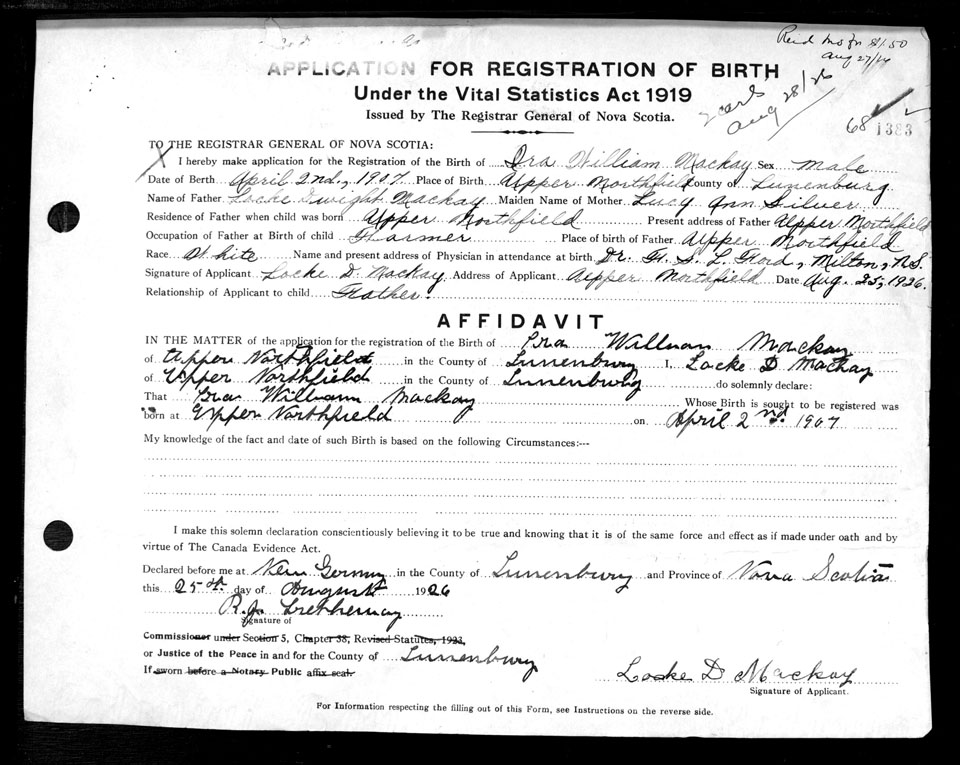 Recd mo fr $1.50
Aug 27/26
APPLICATION FOR REGISTRATION OF BIRTH
Under the Vital Statistics Act 1919
Issued by The Registrar General of Nova Scotia.
2 cards
Aug 28/26
68 1383
TO THE REGISTRAR GENERAL OF NOVA SCOTIA:
X I hereby make application for the Registration of the Birth of Ira William Mackay Sex male
Date of Birth April 2nd, 1907 Place of Birth Upper Northfield County of Lunenburg
Name of Father Locke Dwight Mackay Maiden Name of Mother Lucy Ann Silver
Residence of Father when child was born Upper Northfield Present address of Father Upper Northfield
Occupation of Father at Birth of child Farmer Place of birth of Father Upper Northfield
Race White Name and present address of Physician in attendance at birth Dr. F. S. L. Ford, Milton, N.S.
Signature of Applicant Locke D. Mackay Address of Applicant Upper Northfield Date Aug. 25, 1926.
Relationship of Applicant to child Father.
AFFIDAVIT
IN THE MATTER of the application for the registration of the Birth of Ira William Mackay
of Upper Northfield in the County of Lunenburg I, Locke D Mackay
of Upper Northfield in the County of Lunenburg do solemnly declare:
That Ira William Mackay Whose Birth is sought to be registered was
born at Upper Northfield on April 2nd. 1907
My knowledge of the fact and date of such Birth is based on the following Circumstances:--
I make this solemn declaration conscientiously believing it to be true and knowing that it is of the same force and effect as if made under oath and by
virtue of The Canada Evidence Act.
Declared before me at New Germany in the County of Lunenburg and Province of Nova Scotia
this 25th day of August 1926
R.
Signature of
Commissioner under Section 5, Chapter 38, Revised Statutes, 1923,
or Justice of the Peace in and for the County of Lunenburg
If sworn before a Notary Public affix seal.
Locke D Mackay
Signature of Applicant.
For Information respecting the filling out of this Form, see Instructions on the reverse side.